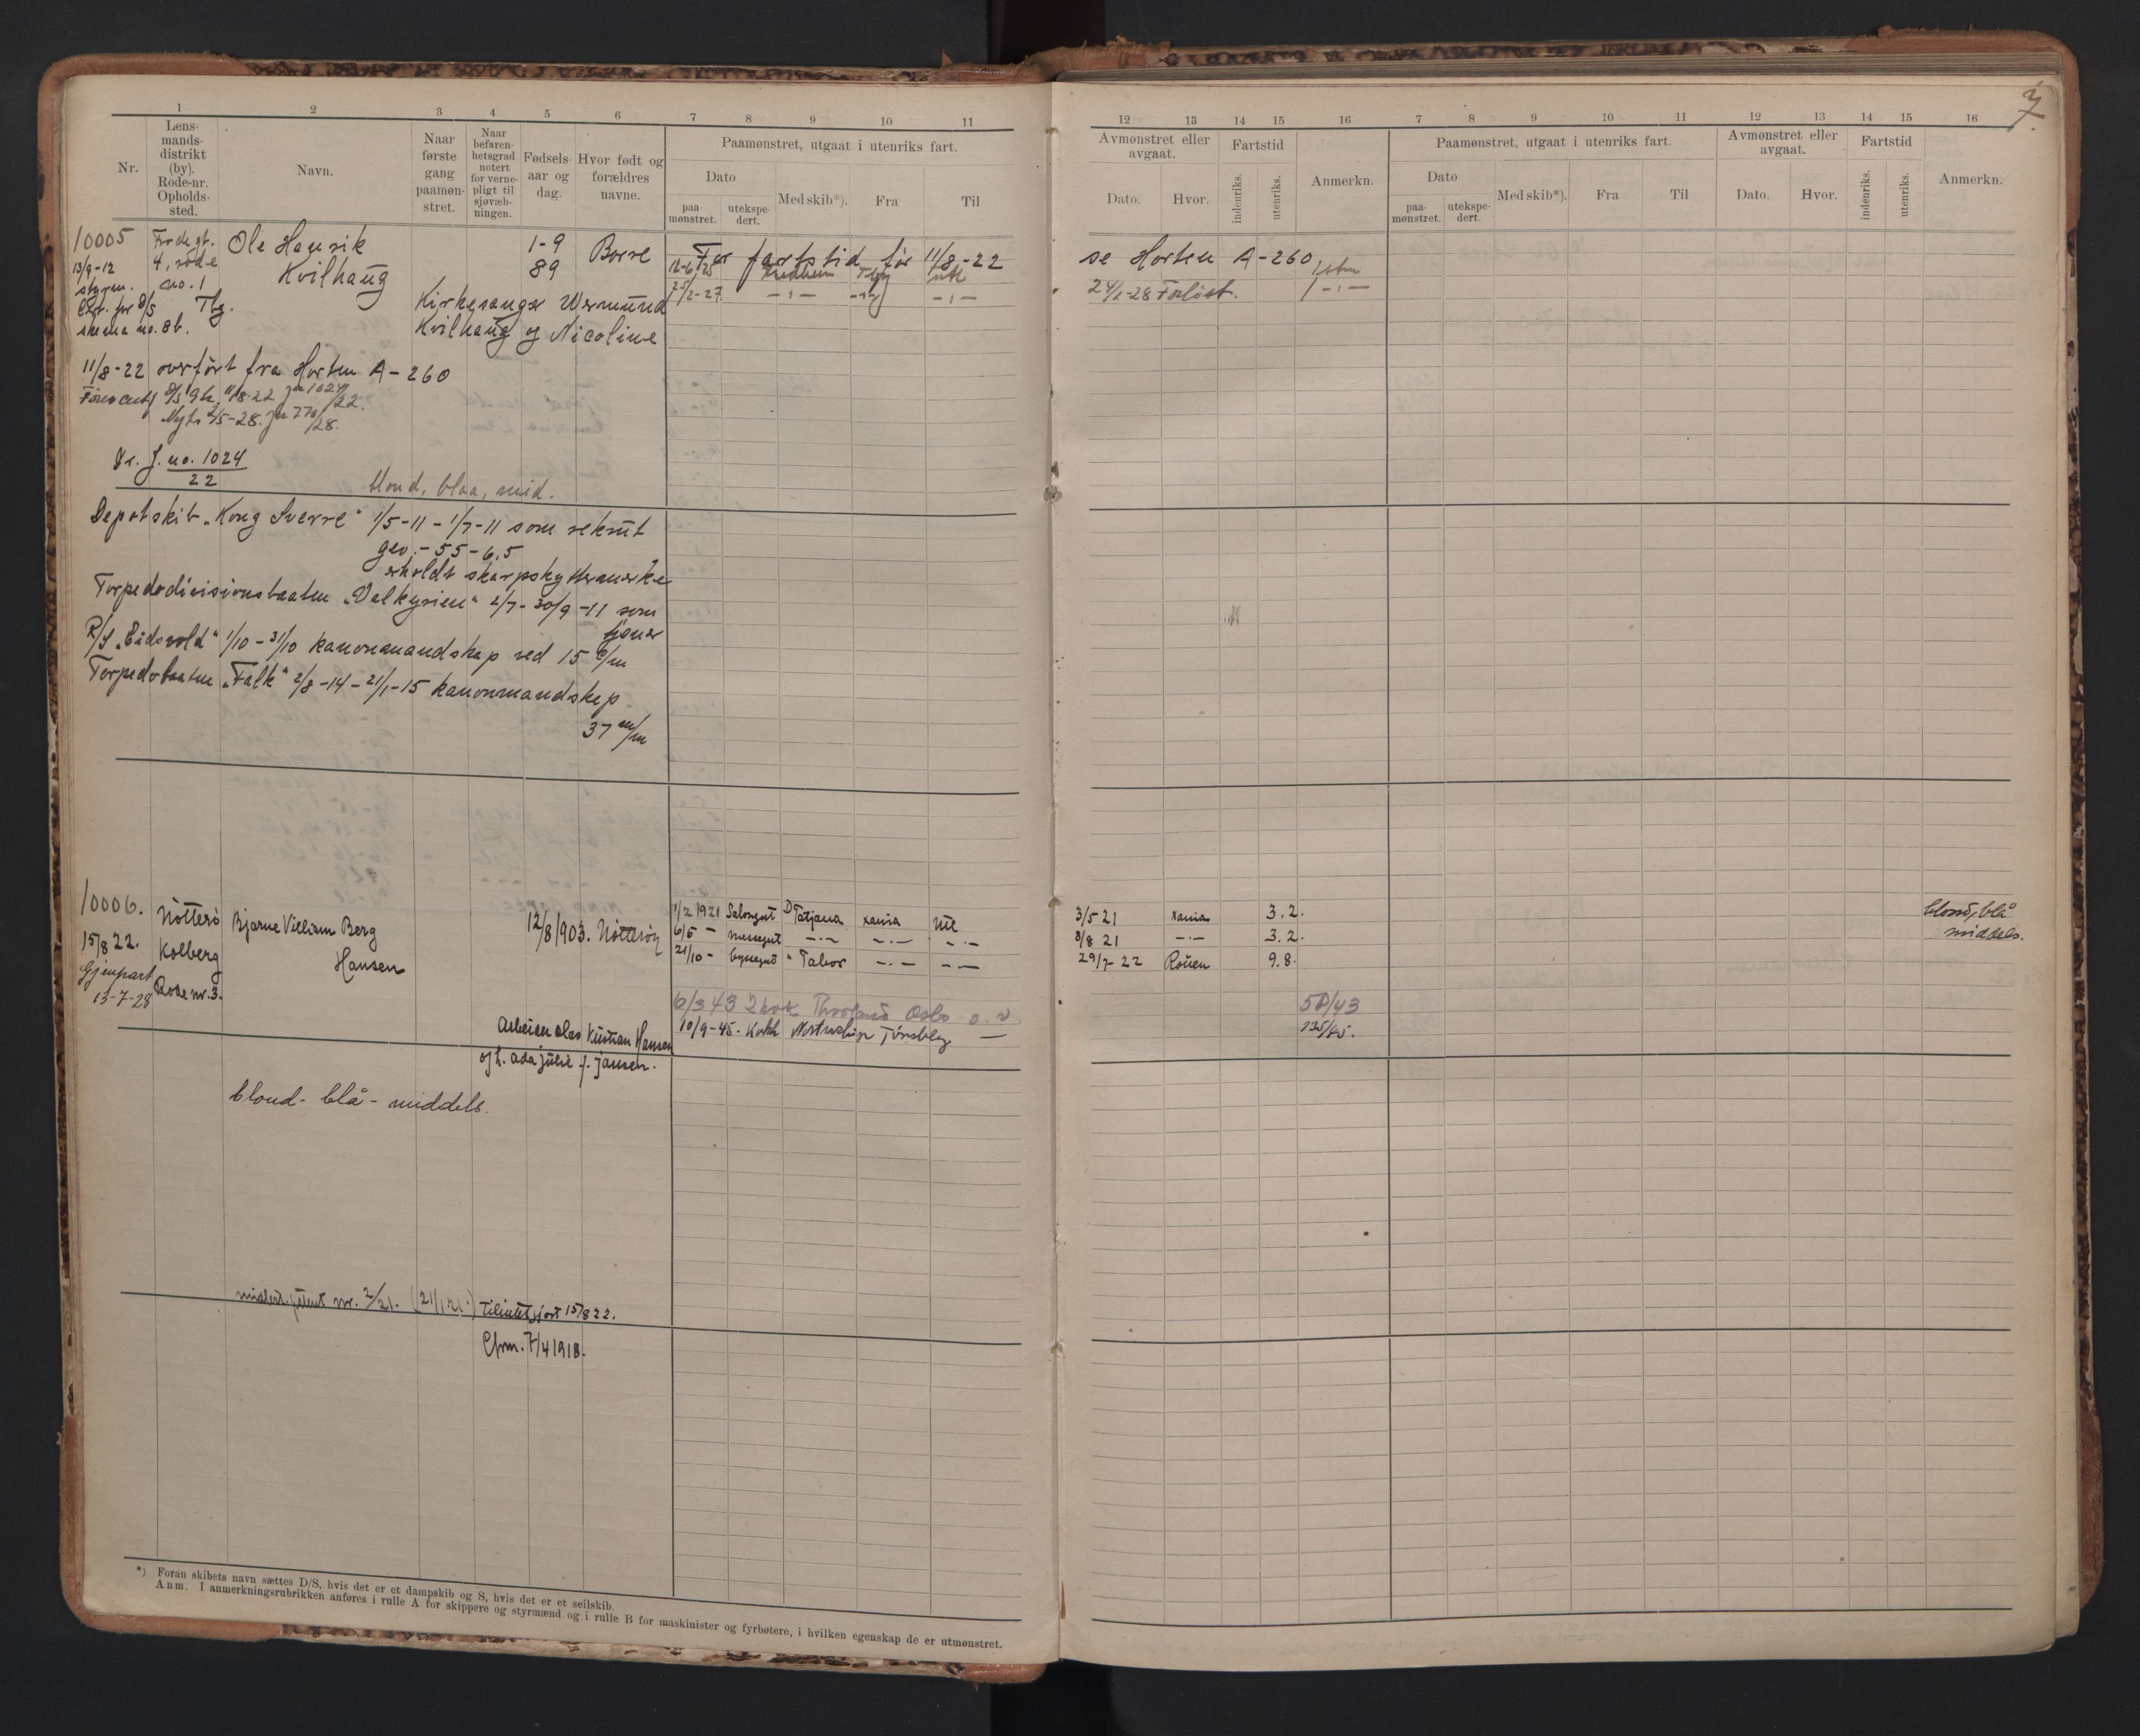 7
1 2 3 4 5 6 7 8 9 10 11
Nr.
Lens-
mands-
distrikt
(by).
Rode-nr.
Opholds-
sted.
Navn.
Naar
første
gang
paamøn-
stret.
Naar
befaren-
hetsgrad
notert
for verne-
pligt til
sjøvæb-
ningen.
Fødsels-
aar og
dag.
Hvor født og
forældres
navne.
Paamønstret, utgaat i utenriks fart.
Dato
paa-
mønstret.
utekspe-
dert.
Med skib*).
Fra
Til
12 13 14 15 16 7 8 9 10 11 12 13 14 15 16
Avmønstret eller
avgaat.
Fartstid
Dato.
Hvor.
indenriks.
utenriks.
Anmerkn.
Paamønstret, utgaat i utenriks fart.
Dato
paa-
mønstret.
utekspe-
dert.
Med skib*).
Fra
Til
Avmønstret eller
avgaat.
Fartstid
Dato.
Hvor.
indenriks.
utenriks.
Anmerkn.
10005
13/9-12
styrm.
Cert. før
skema no. 8b.
4, rode
no. 1
Tbg.
Ole Henrik
Kvilhaug
1-9
89
Borre
Kirkesanger Wermund
Kvilhaug og Nicoline
For fartstid før 11/8-22
se Horten A-260
25/2-27 -"- -"- -"-
24/2-28 Forlist. -"-
11/8-22 overført fra Horten A-260
11/8-22 jn 1024/22.
Nyts 2/5-28. jn 770/28.
Fr. J. no. 1024
22
blond, blaa, mid.
Depotskib "Kong Sverre" 1/5-11 - 1/7-11 som rekrut
gev. - 55 - 6,5
erholdt skarpskyttermerke
Torpedodivisionsbaaten "Valkyrien" 2/7 - 30/9 -11 som
tjener
P/S "Eidsvold" 1/10 - 31/10 kanonmandskap ved 15 c/m
Torpedobaaten "Falk" 2/8-14 - 21/1-15 kanonmandskap
37 m/m
10006.
15/8 22.
Gjenpart
13-7-28
Nötterö
Kolberg
Rode nr. 3.
Bjarne Villiam Berg
Hansen
12/8 1903.
Nötteröy
Arbeider Olav Kristian Hansen
og h. Ada Julie f. Jansen.
1/2 1921 Salongut D Tatjana Xania Utl
3/5 21 Xania 3. 2.
6/5 - messegut -"- -"- -"-
8/8 21 -"- 3. 2.
21/10 - byssegut " Tabor -"- -"-
29/7-22 Rouen 9. 8.
6/3 43 2 kok Thorland Oslo
10/9-45. Kokk Tönsberg -
135/45.
blond, blå
middels.
blond - blå - middels.
midlert. patent nr. 2/21. (21/1 21.) tilintetgjort 15/8 22.
Chrm. 7/4 1918.
*) Foran skibets navn sættes D/S, hvis det er et dampskib og S, hvis det er et seilskib.
Anm. I anmerkningsrubrikken anføres i rulle A for skippere og styrmænd og i rulle B for maskinister og fyrbøtere, i hvilken egenskap de er utmønstret.